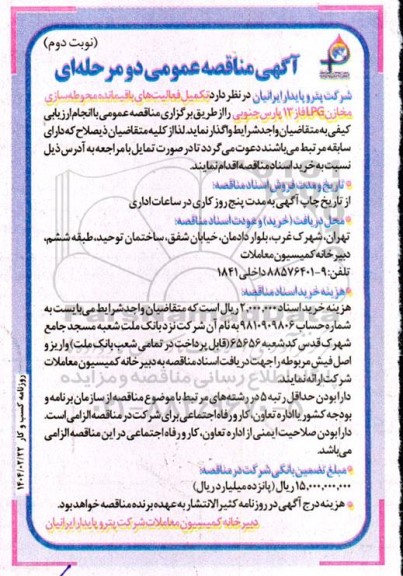 (نوبت دوم)
آگهی مناقصه عمومی دو مرحله‌ای
شرکت پترو پایدار ایرانیان در نظر دارد تکمیل فعالیت‌های باقیمانده محوطه سازی
مخازن LPG فاز ۱۳ پارس جنوبی را از طریق برگزاری مناقصه عمومی با انجام ارزیابی
کیفی به متقاضیان واجد شرایط واگذار نماید. لذا از کلیه متقاضیان ذیصلاح که دارای
سابقه مرتبط می‌باشند دعوت می‌گردد تا در صورت تمایل با مراجعه به آدرس ذیل
نسبت به خرید اسناد مناقصه اقدام نمایند.
* تاریخ و مدت فروش اسناد مناقصه:
از تاریخ چاپ آگهی به مدت پنج روز کاری در ساعات اداری
* محل دریافت (خرید) و عودت اسناد مناقصه:
تهران، شهرک غرب، بلوار دادمان، خیابان شفق، ساختمان توحید، طبقه ششم،
دبیرخانه کمیسیون معاملات
تلفن: ۹-۸۸۵۷۶۴۰۱ داخلی ۱۸۴۱
* هزینه خرید اسناد مناقصه:
هزینه خرید اسناد ۲،۰۰۰،۰۰۰ ریال است که متقاضیان واجد شرایط می‌بایست به
شماره حساب ۹۸۱۰۹۰۹۸۰۶ به نام آن شرکت نزد بانک ملت شعبه مسجد جامع
شهرک قدس کد شعبه ۶۵۶۵۶ (قابل پرداخت در تمامی شعب بانک ملت) واریز و
اصل فیش مربوطه را جهت دریافت اسناد مناقصه به دبیرخانه کمیسیون معاملات
شرکت ارائه نمایند.
دارا بودن حداقل رتبه ۵ در رشته‌های مرتبط با موضوع مناقصه از سازمان برنامه و
بودجه کشور یا اداره تعاون، کار و رفاه اجتماعی برای شرکت در مناقصه الزامی است.
دارا بودن صلاحیت ایمنی از اداره تعاون، کار و رفاه اجتماعی در این مناقصه الزامی
می‌باشد.
* مبلغ تضمین بانکی شرکت در مناقصه:
۱۵،۰۰۰،۰۰۰،۰۰۰ ریال (پانزده میلیارد ریال)
* هزینه درج آگهی در روزنامه کثیرالانتشار به عهده برنده مناقصه خواهد بود.
دبیرخانه کمیسیون معاملات شرکت پترو پایدار ایرانیان
روزنامه کسب و کار ۱۴۰۴/۰۲/۲۲